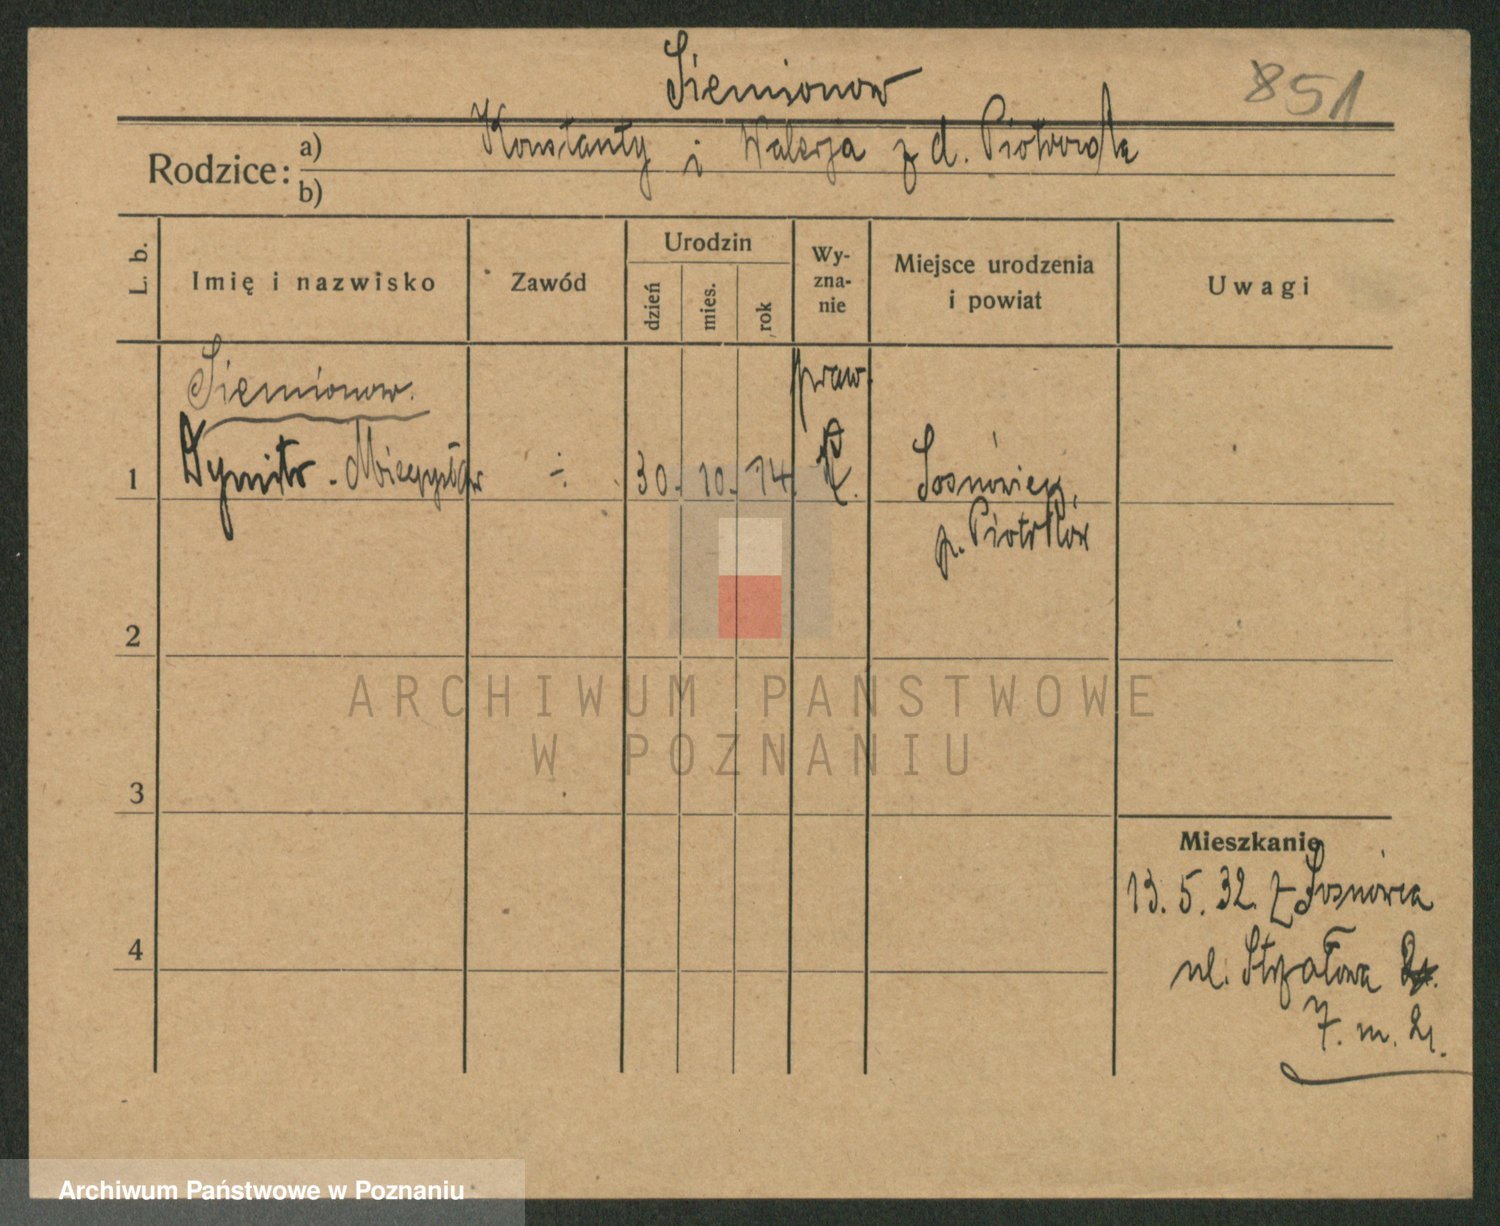 Siemionow
851
Konstanty i Walerja z d. Piotrowska
Rodzice:
a)
b)
L. b.
Imię i nazwisko
Zawód
Urodzin
dzień
mies.
rok
Wy-
zna-
nie
Miejsce urodzenia
i powiat
Uwagi
Siemionow.
praw.
1
Dymitr - Mieczysław
÷
30. 10. 14.
Sosnowiec,
p. Piotrków
2
3
4
Mieszkanie
13. 5. 32. z Sosnowca
ul. Strzałowa
7. m. 21.
ARCHIWUM PAŃSTWOWE
W POZNANIU
Archiwum Państwowe w Poznaniu